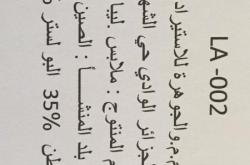 LA -002
م.م.والجوهرة للاستيراد
جزائر الوادي حي الشه
م المنتوج : ملابس
بلد المنشأ : الصين
طن 35% البو لستر